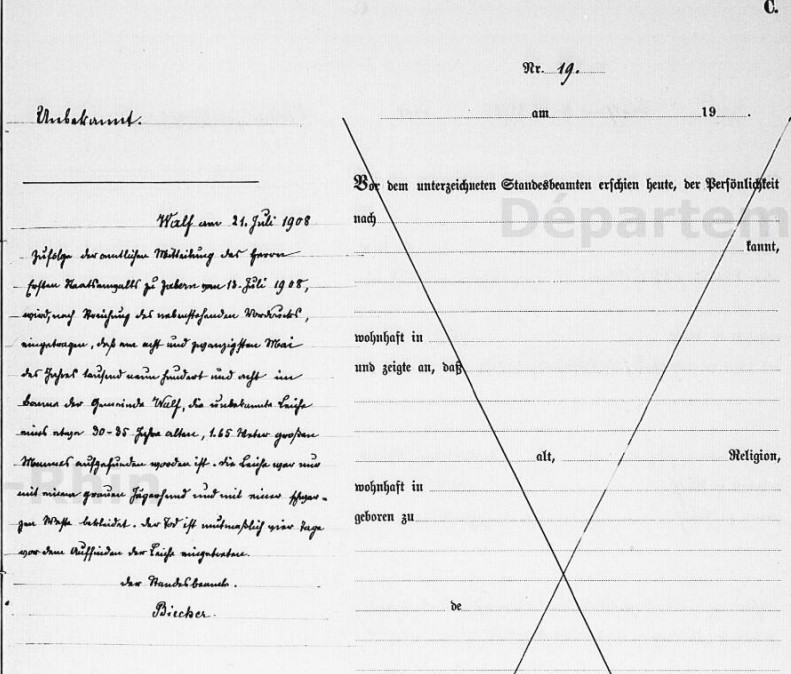 C.
Nr. 19.
Unbekannt.
am 19 .
Vor dem unterzeichneten Standesbeamten erschien heute, der Persönlichkeit
nach
kannt,
wohnhaft in
und zeigte an, daß
alt, Religion,
wohnhaft in
geboren zu
de
Walf am 21. Juli 1908
Zufolge der amtlichen Mitteilung des Herrn
Ersten Staatsanwalts zu Zabern vom 13. Juli 1908,
wird, nach Streichung des nebenstehenden Vordrucks,
eingetragen, daß am acht und zwanzigsten Mai
des Jahres tausend neun hundert und acht im
Banne der Gemeinde Walf, die unbekannte Leiche
eines etwa 30-35 Jahre alten, 1.65 Meter großen
Mannes aufgefunden worden ist. Die Leiche war nur
mit einem grauen Jägerhemd und mit einer schwar-
zen Weste bekleidet. Der Tod ist mutmaßlich vier Tage
vor dem Auffinden der Leiche eingetreten.
Der Standesbeamte.
Biecher.
Départem
-Rhin